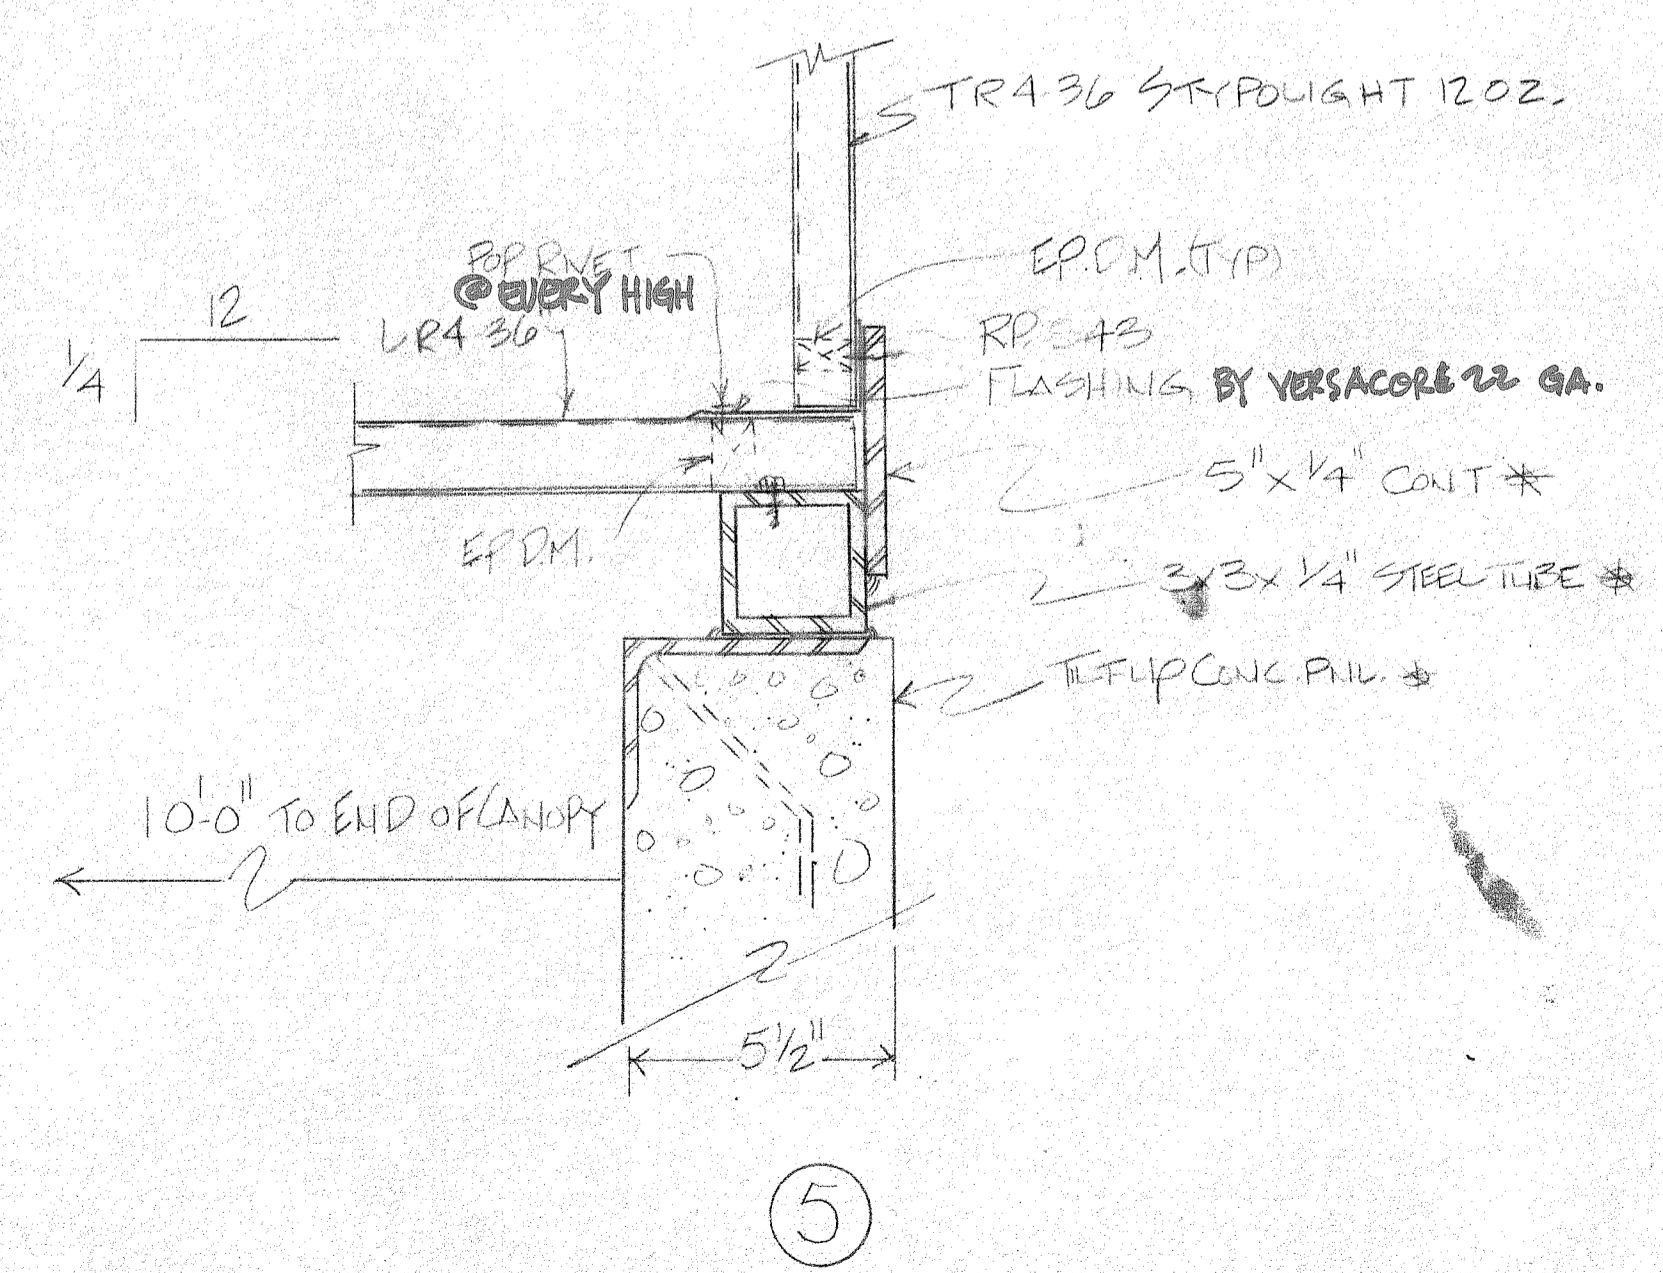 TR4-36 STYPOLIGHT 12 OZ.
POP RIVET
@ EVERY HIGH
E.P.D.M. (TYP)
12
1/4
LR4-36
FLASHING BY VERSACORE 22 GA.
5" x 1/4" CONT *
E.P.D.M.
3 x 3 x 1/4" STEEL TUBE *
TILT-UP CONC. PNL. *
10'-0" TO END OF CANOPY
5 1/2"
5